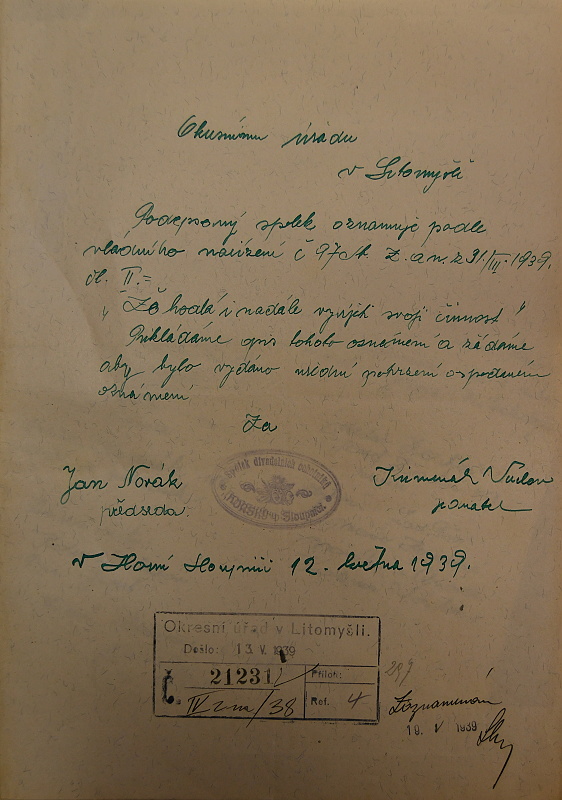 Okresnímu úřadu
v Litomyšli
Podepsaný spolek oznamuje podle
vládního nařízení č 97 sb. z. a n. z 31/III. 1939.
čl. II. =
„Že hodlá i nadále vyvíjeti svoji činnost"
Přikládáme opis tohoto oznámení a žádáme
aby bylo vydáno úřední potvrzení o podaném
oznámení
Za
Jan Novák
předseda.
Spolek divadelních ochotníků
Sloupnice
Václav
jednatel
V Horní Sloupnici 12. května 1939.
Okresní úřad v Litomyšli.
Došlo: 13. V. 1939
Č. 21231/
Příloh:
IV /38
Ref. 4
Zaznamenán
19. V 1939